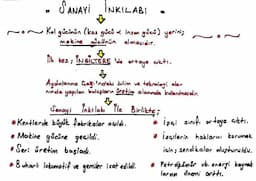 SANAYİ İNKILABI
Kol gücünün (kas gücü = insan gücü) yerini;
makine gücünün almasıdır.
İlk kez; İNGİLTERE'de ortaya çıktı.
Aydınlanma Çağı'ndaki bilim ve teknoloji ala-
nında yapılan buluşların üretim alanında kullanılmasıdır.
Sanayi İnkılabı İle Birlikte;
• Kentlerde büyük fabrikalar açıldı.
• Makine gücüne geçildi.
• Seri üretim başladı.
• Buharlı lokomotif ve gemiler icat edildi.
• İşçi sınıfı ortaya çıktı.
• İşçilerin haklarını korumak
için; sendikalar oluşturuldu.
• Petrol, kömür vb. enerji kaynak
larının önemi arttı.